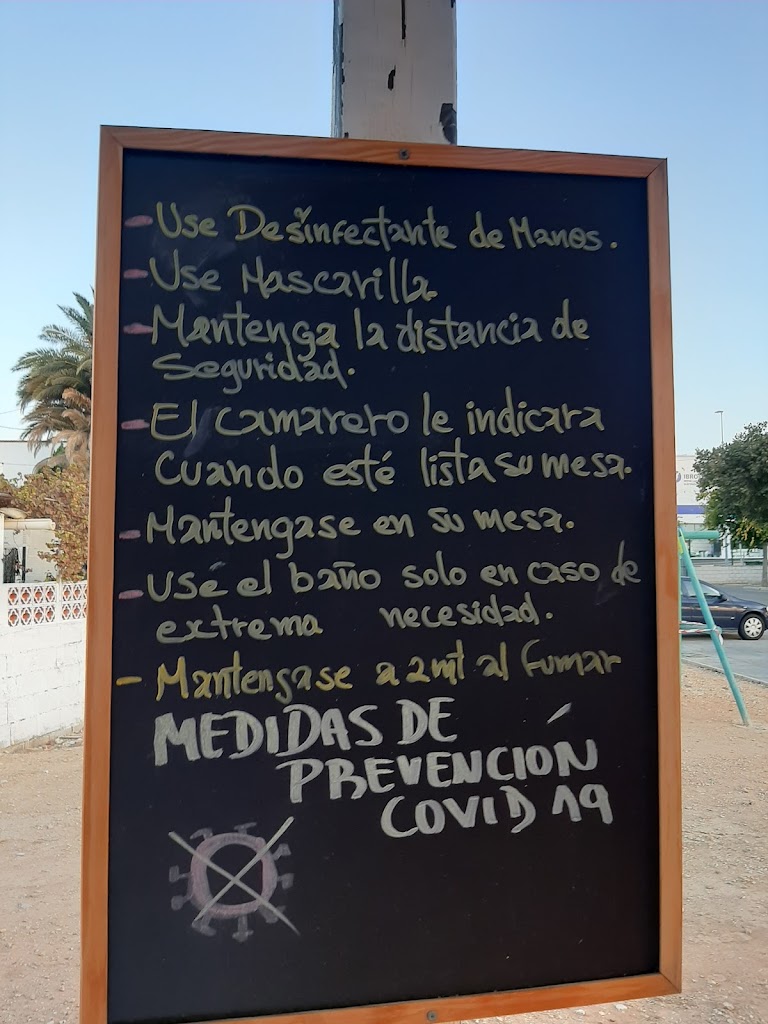 - Use Desinfectante de Manos.
- Use Mascarilla.
- Mantenga la distancia de
Seguridad.
- El camarero le indicara
Cuando esté lista su mesa.
- Mantengase en su mesa.
- Usé el baño solo en caso de
extrema necesidad.
- Mantengase a 2mt al fumar
MEDIDAS DE
PREVENCIÓN
COVID 19